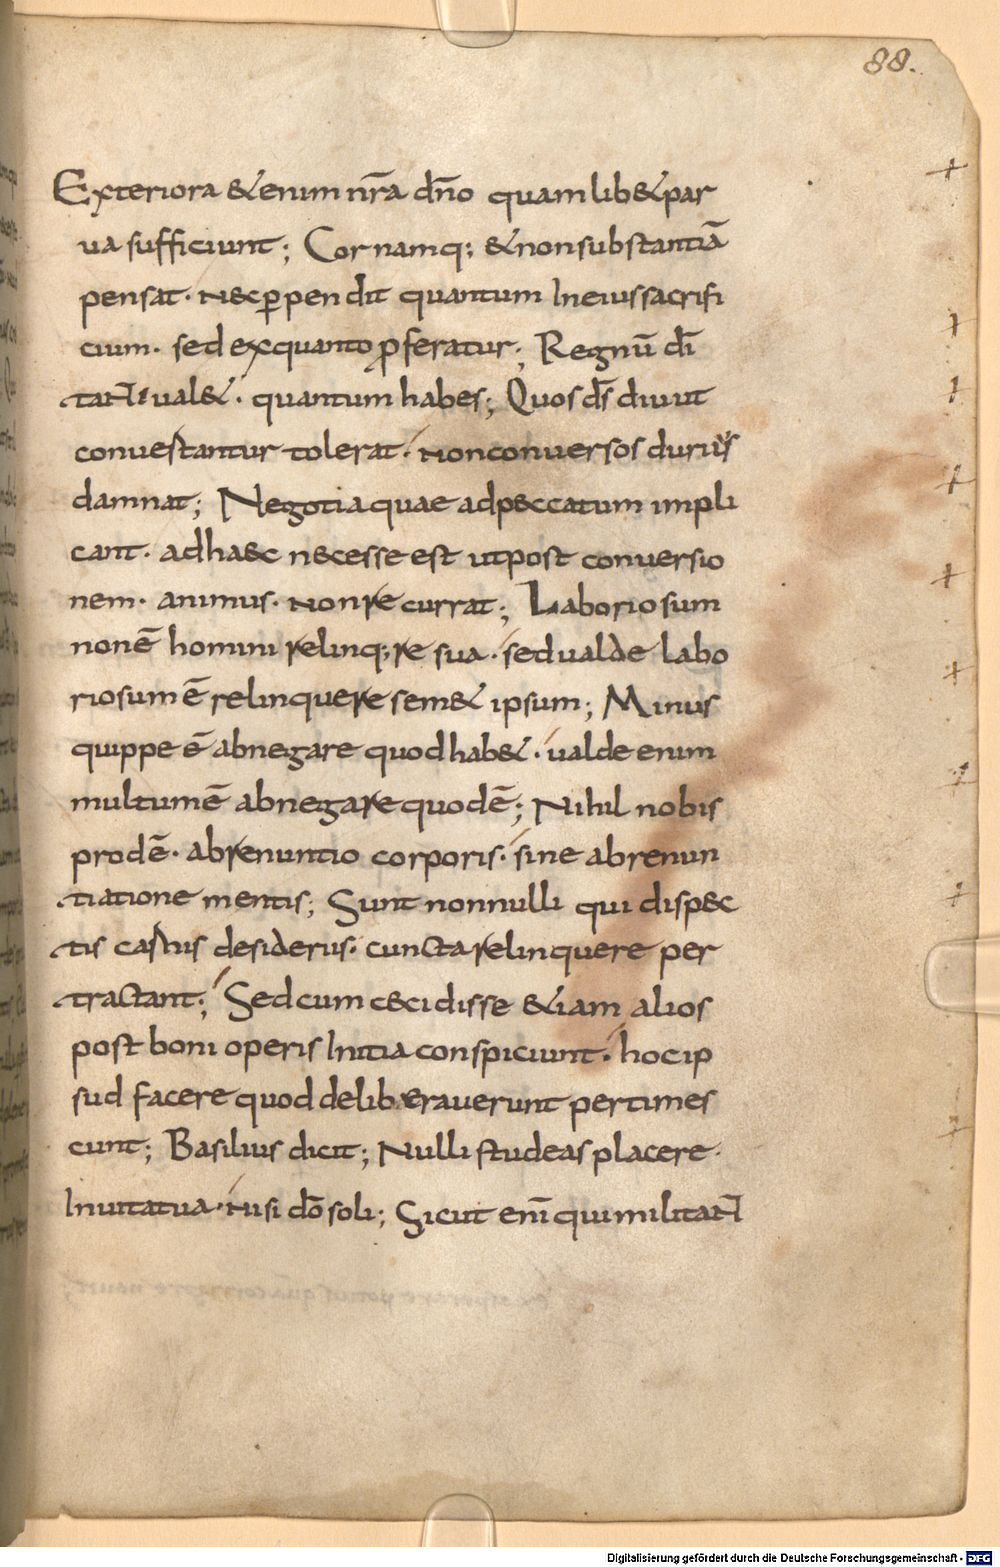 88.
Exteriora &enim nr̄a dn̄o quam lib&par
ua sufficiunt; Cor namq; &non substantiā
pensat· nec ꝑpendit quantum In eius sacrifi
cium· sed exquanto ꝓferatur; Regnū dī
tant ual&· quantum habes; Quos ds̄ diu ut
conuertantur tolerat· non conuersos durius
damnat; Negotia quae adpeccatum impli
cant· ad haec necesse est ut post conuersio
nem· animus· non recurrat; Laboriosum
non ē homini relinq;re sua· sed ualde labo
riosum ē relinquere sem& ipsum; Minus
quippe ē abnegare quod hab&· ualde enim
multum ē abnegare quod ē; Nihil nobis
prod ē· abrenuntio corporis· sine abrenun
tiatione mentis; Sunt nonnulli qui dispec
tis carnis desideriis· cuncta relinquere per
tractant; Sed cum cecidisse &iam alios
post boni operis Initia conspiciunt· hoc ip
sud facere quod deliberauerunt pertimes
cunt; Basilius dicit; Nulli studeas placere·
In uita tua· nisi dō soli; Sicut enī qui militant
Digitalisierung gefördert durch die Deutsche Forschungsgemeinschaft - DFG